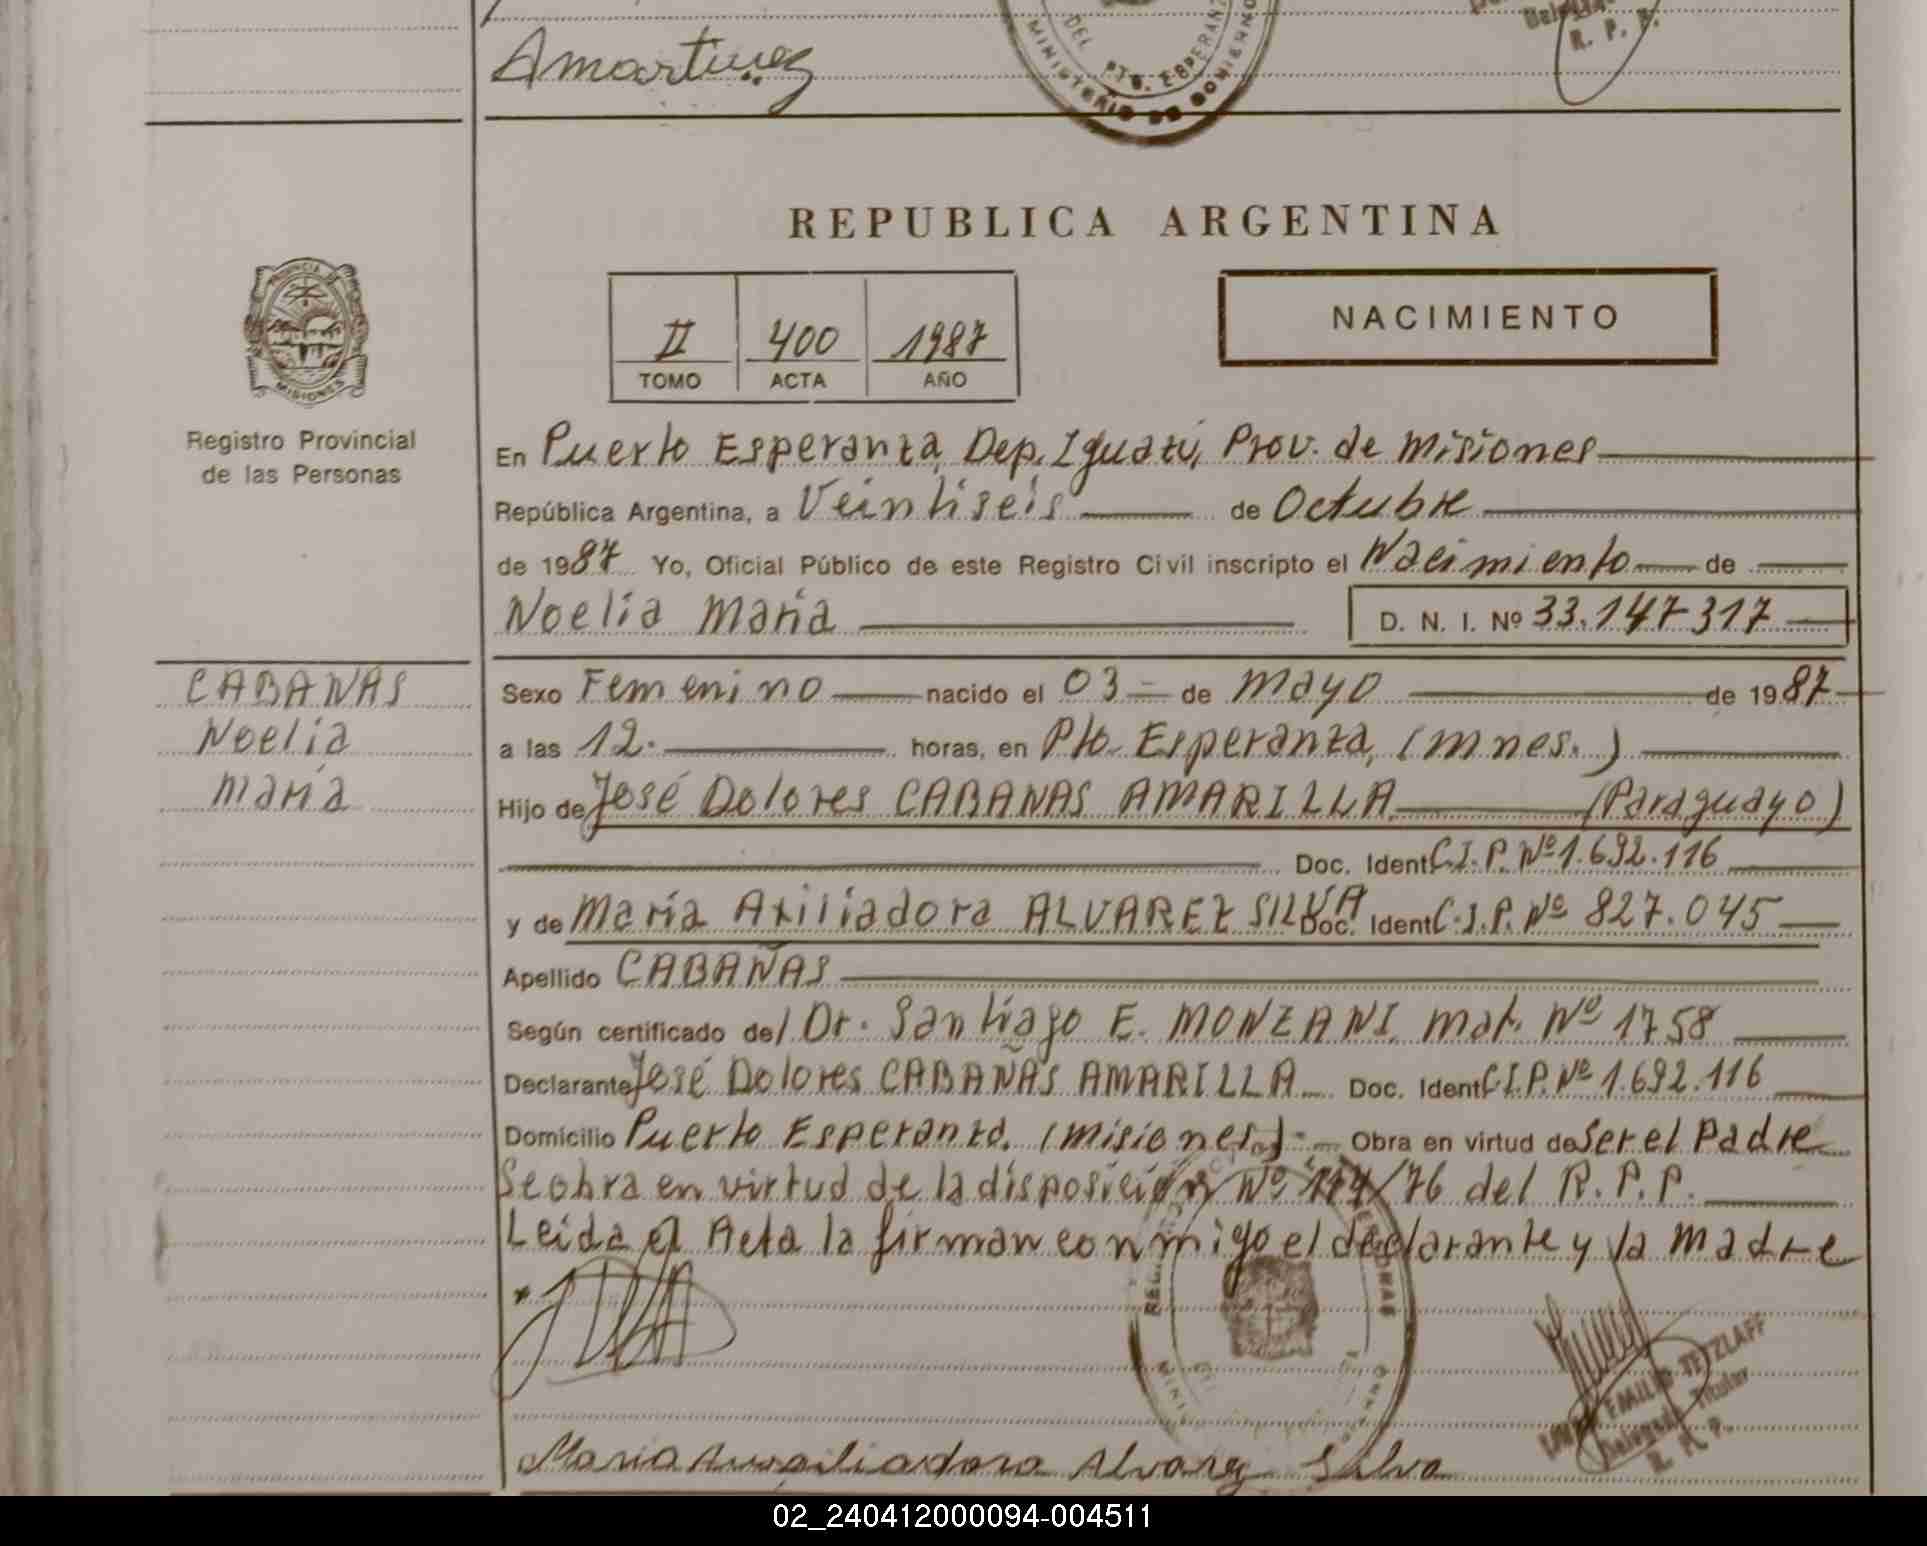 Amartinez
DEL PTO. ESPERANZ
MINISTERIO DE GOBIERNO
R. P. P.
REPUBLICA ARGENTINA
PROVINCIA DE
MISIONES
Registro Provincial
de las Personas
II 400 1987
TOMO ACTA AÑO
NACIMIENTO
En Puerto Esperanza, Dep. Iguazú, Prov. de Misiones
República Argentina, a Veintiseis de Octubre
de 1987 Yo, Oficial Público de este Registro Civil inscripto el Nacimiento de
Noelia María D. N. I. Nº 33.147317
CABANAS
Noelia
María
Sexo Femenino nacido el 03 de Mayo de 1987
a las 12. horas, en Pto. Esperanza, (mnes.)
Hijo de José Dolores CABANAS AMARILLA (Paraguayo)
Doc. Ident C.I.P. Nº 1.692.116
y de María Axiliadora ALVAREZ SILVA Doc. Ident C.I.P. Nº 827.045
Apellido CABAÑAS
Según certificado del Dr. Santiago E. MONZANI, mat. Nº 1758
Declarante José Dolores CABAÑAS AMARILLA Doc. Ident C.I.P. Nº 1.692.116
Domicilio Puerto Esperanza. (Misiones) Obra en virtud de Ser el Padre
Se obra en virtud de la disposición Nº 174/76 del R. P. P.
Leida el Acta la firman conmigo el declarante y la Madre
EMILIO TETZLAFF
Delegado Titular
R. P. P.
Maria Auxiliadora Alvarez Silva
02_240412000094-004511